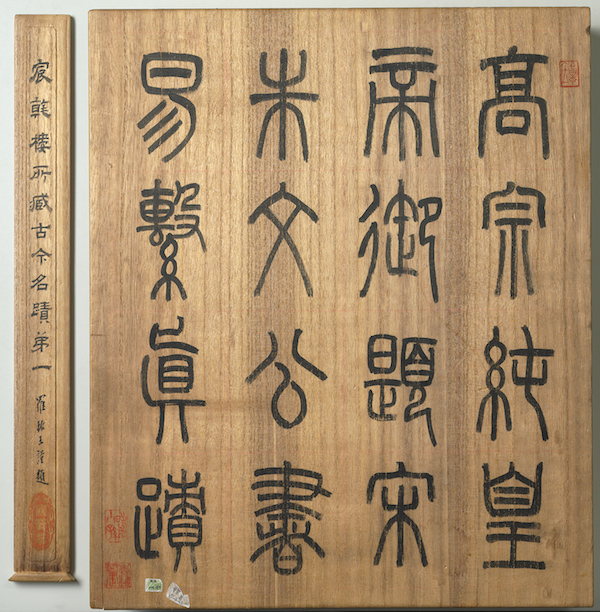 高宗純皇
帝御題宋
朱文公書
易繫眞蹟
宸翰樓所藏古今名蹟弟一
羅振玉謹題